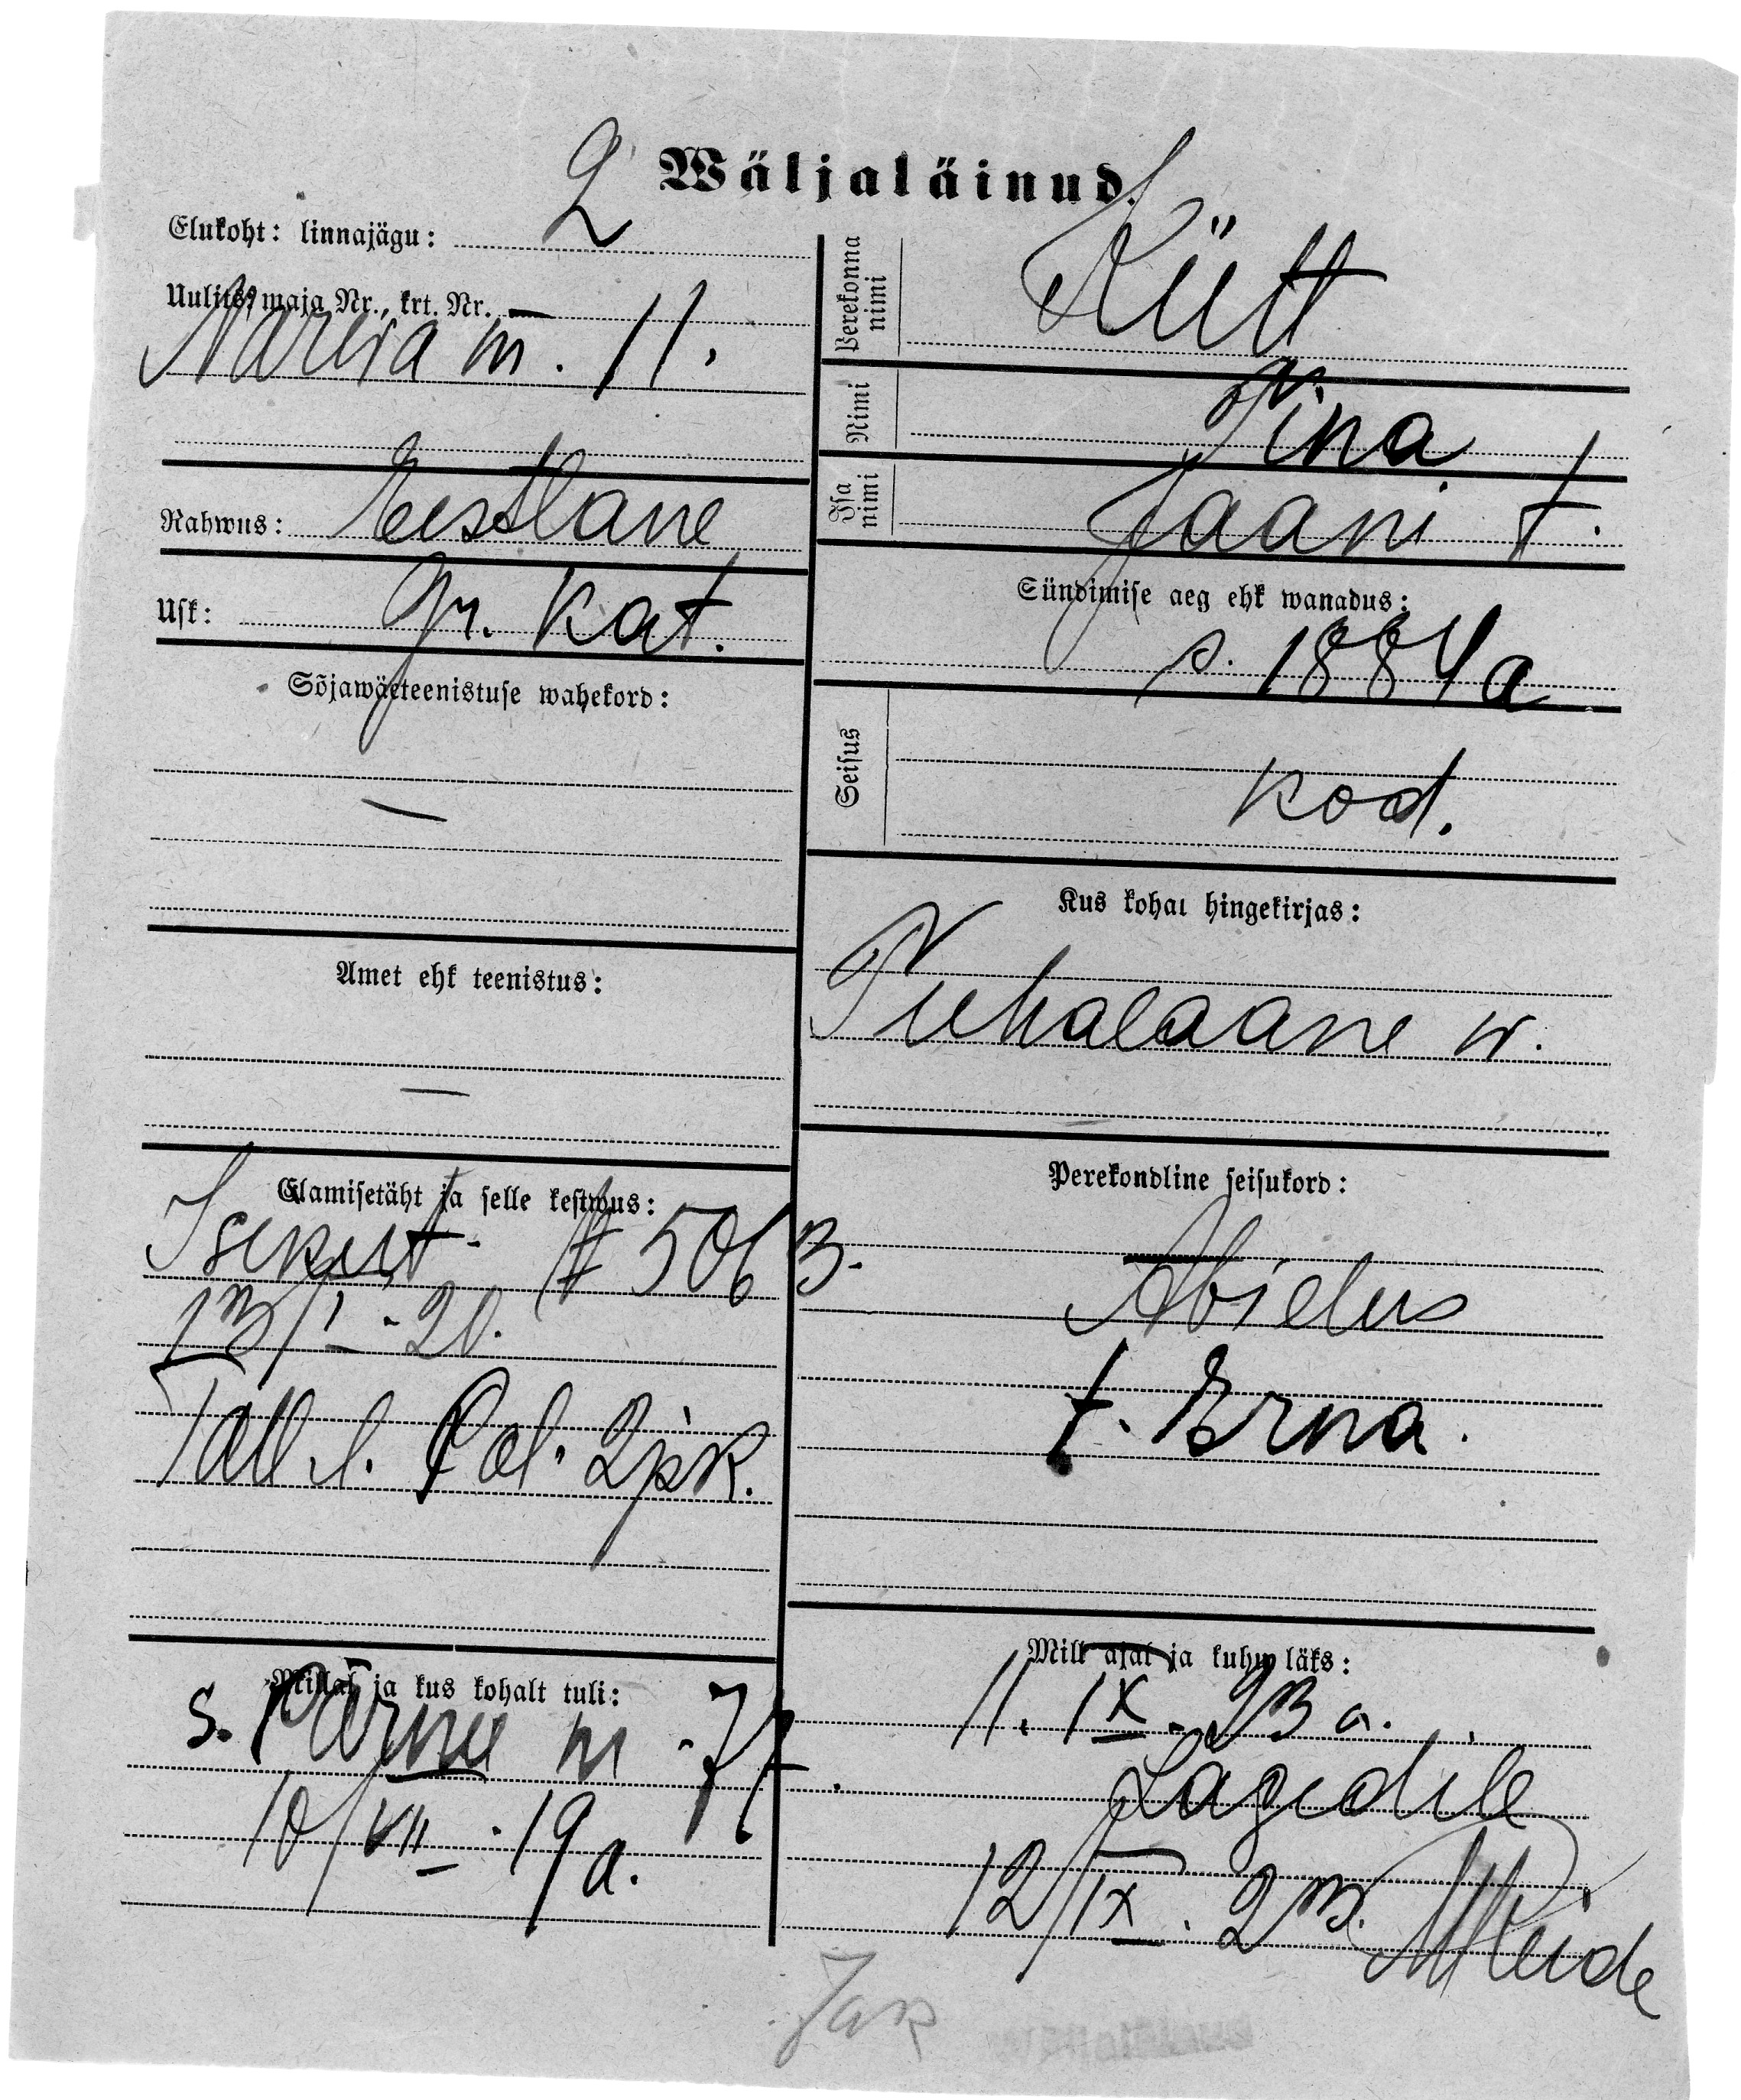 Wäljaläinud.
Elukoht: linnajägu: 2
Uulits, maja Nr., krt. Nr.
Narva m. 11.
Rahwus: Eestlane
Usk: Gr. kat.
Sõjawäeteenistuse wahekord:
—
Amet ehk teenistus:
—
Elamisetäht ja selle kestwus:
Isikut. № 506 B.
13/I - 20.
Tall. l. Pol. 2 jsk.
Millal ja kus kohalt tuli:
s. Pärnu m - 77.
10/VII - 19 a.
Perekonna nimi
Kütt
Nimi
Tina
Isa nimi
Jaani t.
Sündimise aeg ehk wanadus:
s. 1884 a
Seisus
kod.
Kus kohal hingekirjas:
Tuhalaane w.
Perekondline seisukord:
Abielus
t. Erna.
Mill ajal ja kuhu läks:
11. IX. 23 a.
Lagedile
12/IX. 23.
Jak